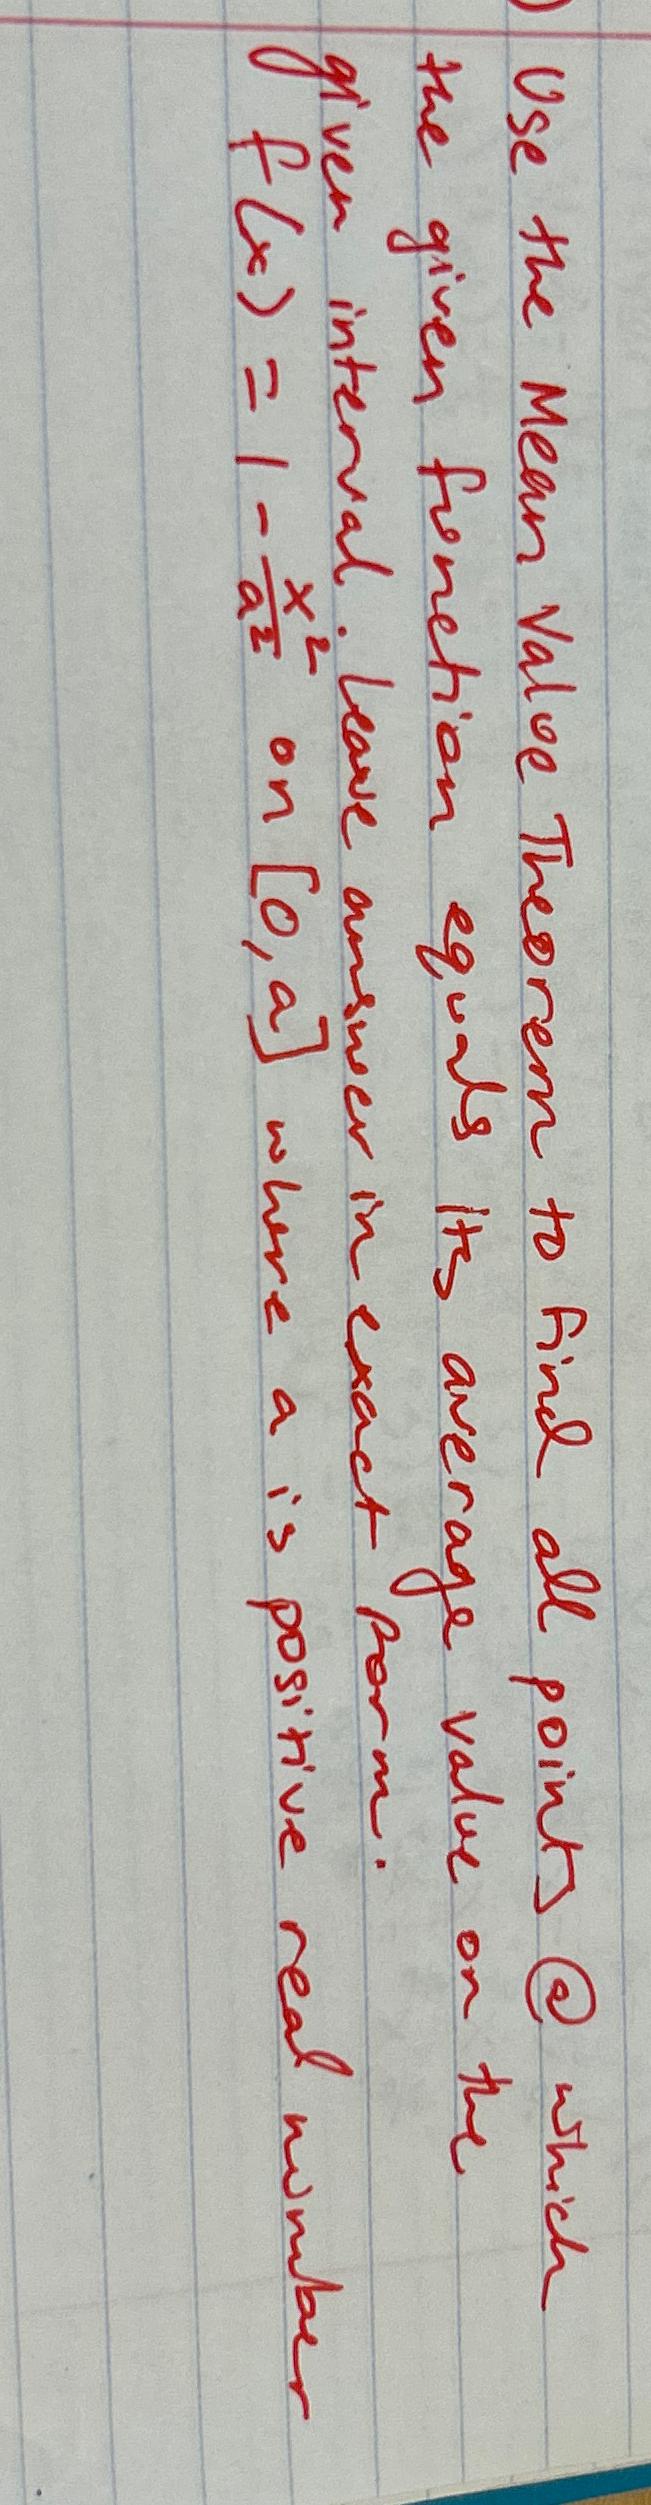 ) Use the Mean Value Theorem to find all points @ which
the given function equals its average value on the
given interval. Leave answer in exact form.
f(x) = 1 - x²/a² on [0, a] where a is positive real number